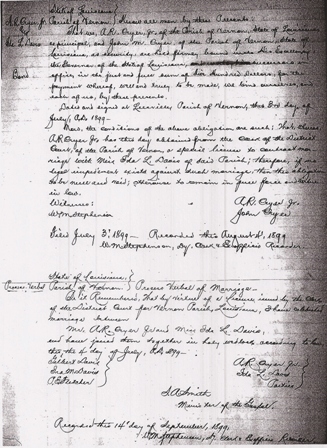 State of Louisiana
A.R. Cryer Jr. Parish of Vernon } Know all men by these Presents
That we, A.R. Cryer, Jr. of the Parish of Vernon, State of Louisiana,
as principal, and John M. Cryer, of the Parish of Vernon, State of
Louisiana, as security, are held firmly bound unto His Excellency
Bond
the Governor of the State of Louisiana, and his successors in
office, in the just and full sum of one hundred Dollars, for the
payment whereof, well and truly to be made, we bind ourselves, and
each of us, by these presents.
Date and signed at Leesville, Parish of Vernon, this 3rd day
July, A.D. 1899.
Now, the conditions of the above obligation are such: That whereas
A.R. Cryer Jr. has this day obtained from the Clerk of the District
Court, of the Parish of Vernon, a special license to contract mar-
riage with Miss Ida L. Davis of said Parish; Therefore, if no
legal impediment exists against such marriage, then this obligation
to be null and void; otherwise to remain in full force and virtue
in law.
Witness:
A.R. Cryer Jr.
W.M. Stephenson
John Cryer
Filed July 3, 1899 Recorded this August 1899
W.M. Stephenson, Dy. Clerk & Exofficio Recorder
State of Louisiana }
Process Verbal
Parish of Vernon } Process Verbal of Marriage
Be it Remembered, That by virtue of a License issued by the Clerk
of the District Court for Vernon Parish, Louisiana, I have celebrated
marriage between
Mr. A.R. Cryer Jr. and Miss Ida L. Davis,
and have joined them together in holy wedlock according to law
this the 4 day of July, A.D. 1899.
Elbert Davis
A.R. Cryer Jr.
Ira M. Davis
Ida L. Davis
Parties
J.A. Smith
Minister of the Gospel.
Recorded this 14th day of September, 1899.
W.M. Stephenson, Dy. Clerk & Exofficio Recorder